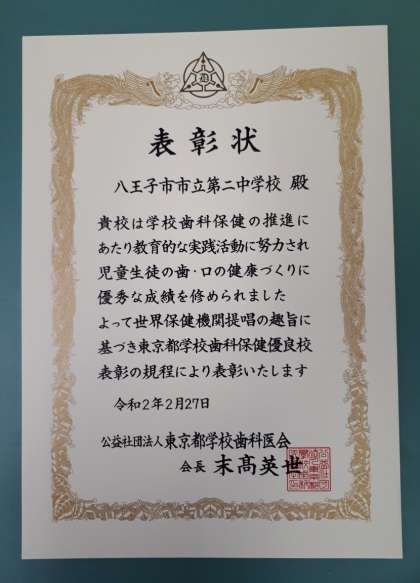 表彰状
八王子市市立第二中学校 殿
貴校は学校歯科保健の推進に
あたり教育的な実践活動に努力され
児童生徒の歯・口の健康づくりに
優秀な成績を修められました
よって世界保健機関提唱の趣旨に
基づき東京都学校歯科保健優良校
表彰の規程により表彰いたします
令和2年2月27日
公益社団法人東京都学校歯科医会
会長 末髙英世